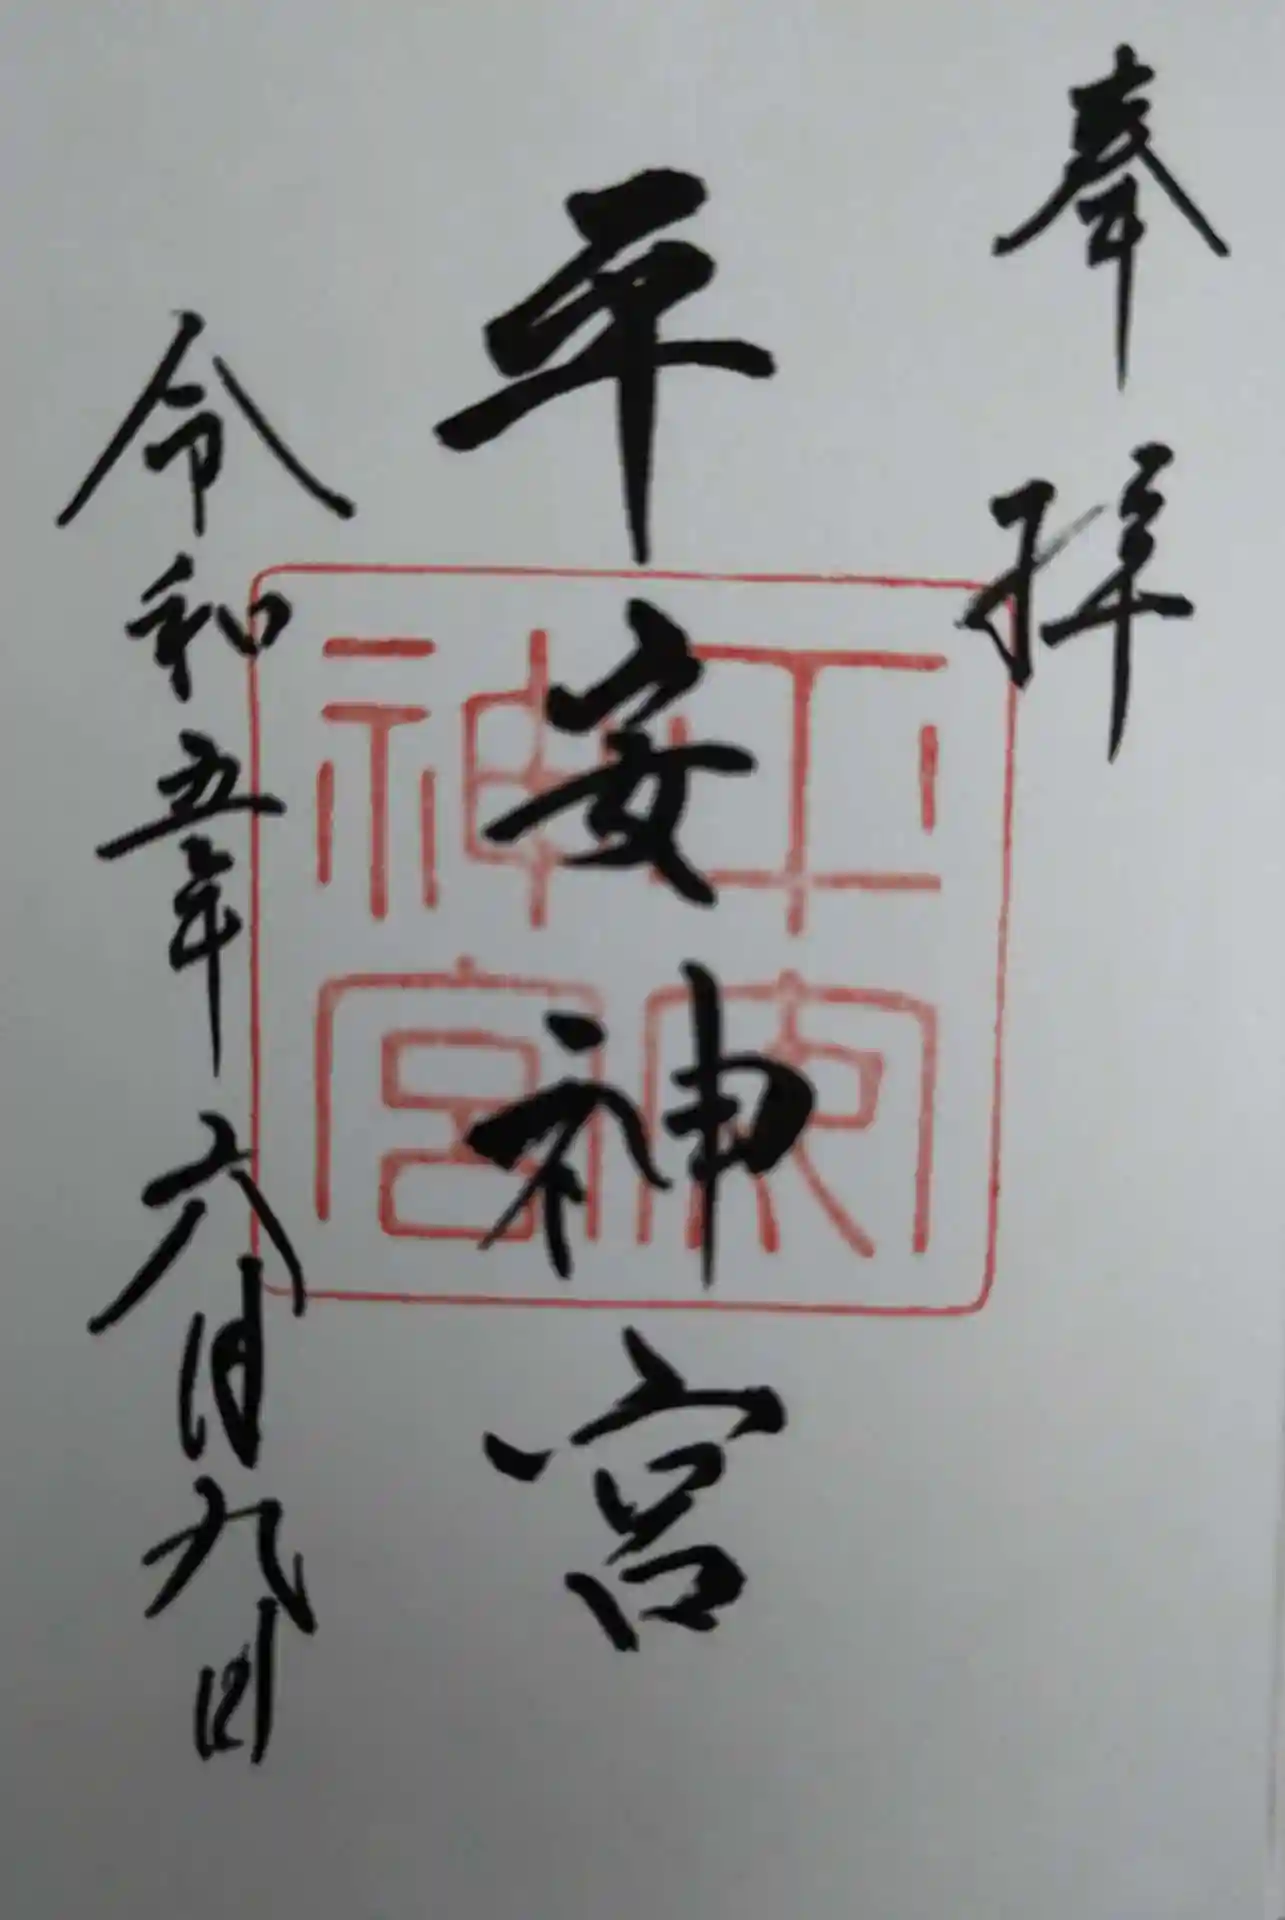 奉拝
平安神宮
平安神宮
令和五年六月九日